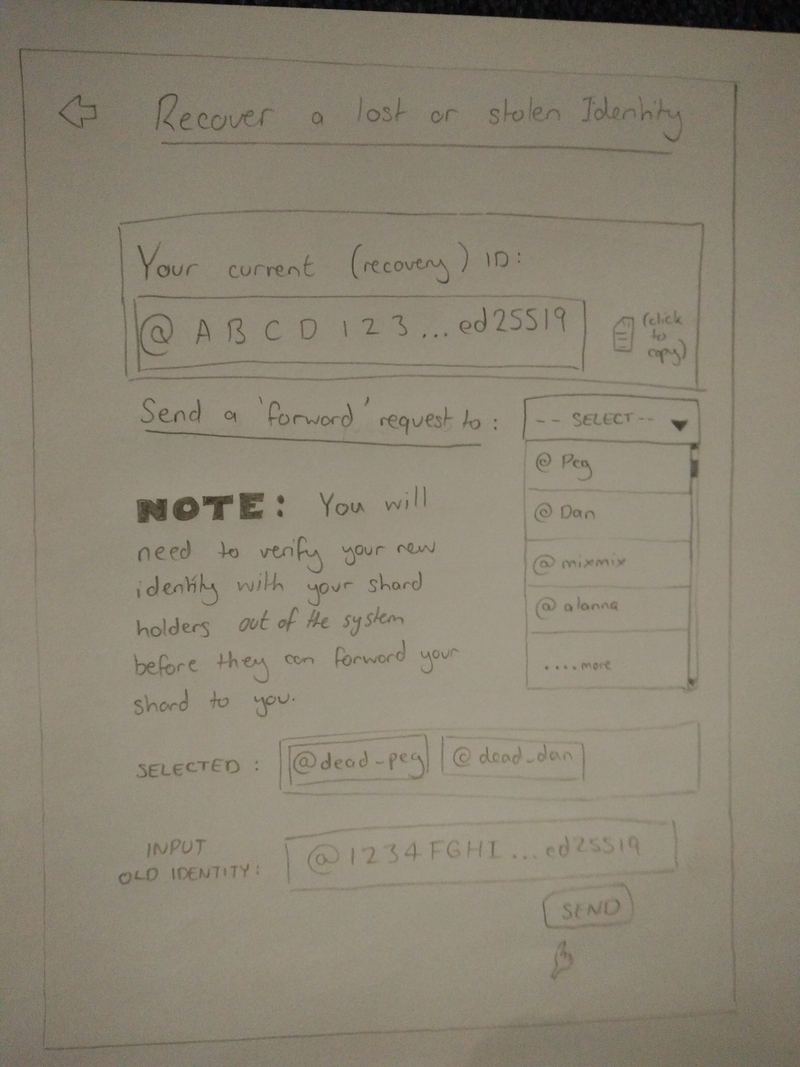 Recover a lost or stolen Identity
Your current (recovery) ID:
@ A B C D 1 2 3 ... ed25519
(click
to
copy)
Send a 'forward' request to :
-- SELECT --
@ Peg
@ Dan
@ mixmix
@ alanna
....more
NOTE: You will
need to verify your new
identity with your shard
holders out of the system
before they can forward your
shard to you.
SELECTED :
@dead_peg
@dead_dan
INPUT
OLD IDENTITY:
@1234FGHI...ed25519
SEND